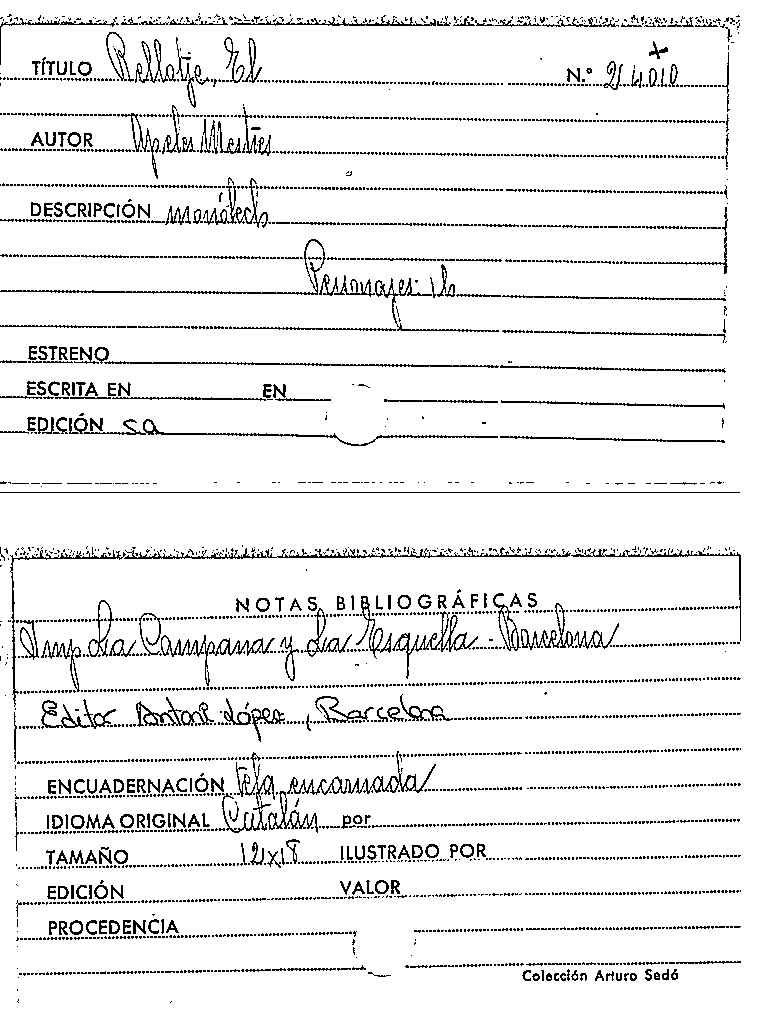 +
TÍTULO Rellotje, El N.° 24010
AUTOR Apeles Mestres
DESCRIPCIÓN monólech
Personajes: 1h
ESTRENO
ESCRITA EN EN
EDICIÓN sa
NOTAS BIBLIOGRÁFICAS
Imp La Campana y La Esquella - Barcelona
Editor Antoni López, Barcelona
ENCUADERNACIÓN tela encarnada
IDIOMA ORIGINAL Catalán por
TAMAÑO 12x18 ILUSTRADO POR
EDICIÓN VALOR
PROCEDENCIA
Colección Arturo Sedó